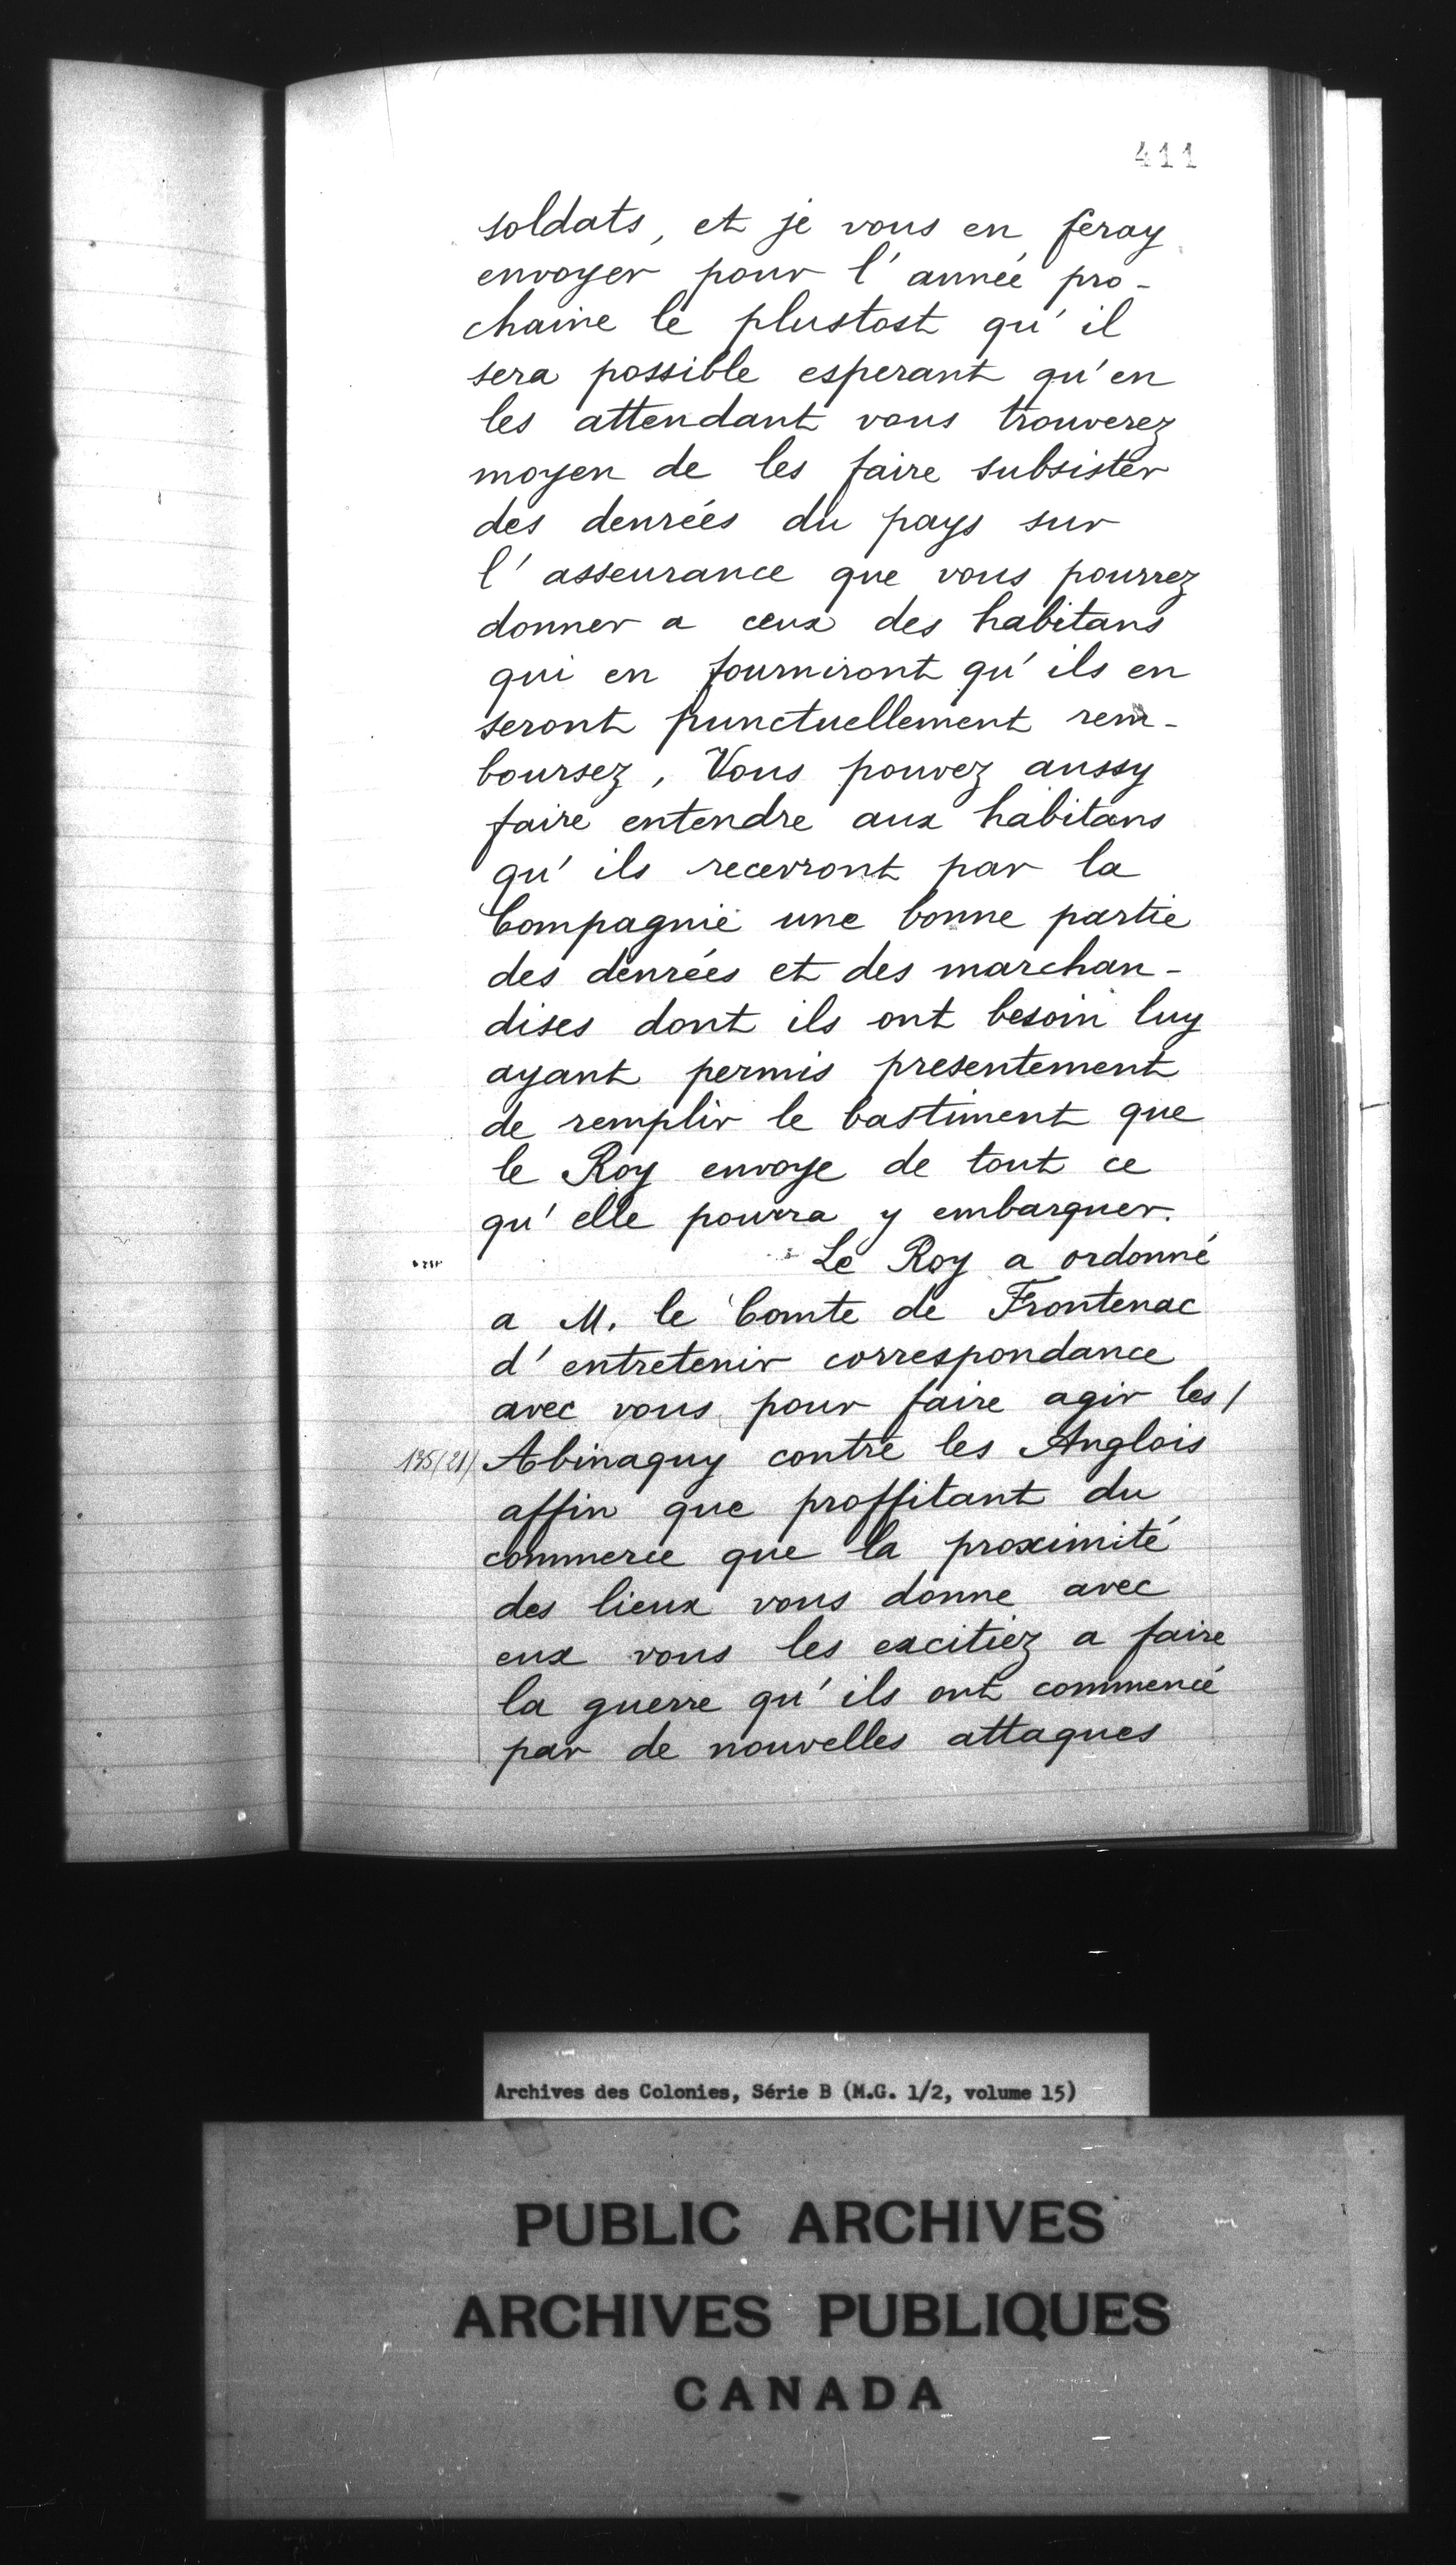 411
soldats, et je vous en feray
envoyer pour l'année pro-
chaine le plustost qu'il
sera possible esperant qu'en
les attendant vous trouverez
moyen de les faire subsister
des denrées du pays sur
l'asseurance que vous pourrez
donner a ceux des habitans
qui en fourniront qu'ils en
seront punctuellement rem-
boursez, Vous pouvez aussy
faire entendre aux habitans
qu'ils recevront par la
Compagnie une bonne partie
des denrées et des marchan-
dises dont ils ont besoin luy
ayant permis presentement
de remplir le bastiment que
le Roy envoye de tout ce
qu'elle pourra y embarquer.
Le Roy a ordonné
a M. le Comte de Frontenac
d'entretenir correspondance
avec vous pour faire agir les/
Abinaquy contre les Anglois
affin que proffitant du
commerce que la proximité
des lieux vous donne avec
eux vous les excitiez a faire
la guerre qu'ils ont commencé
par de nouvelles attaques
Archives des Colonies, Série B (M.G. 1/2, volume 15)
PUBLIC ARCHIVES
ARCHIVES PUBLIQUES
CANADA